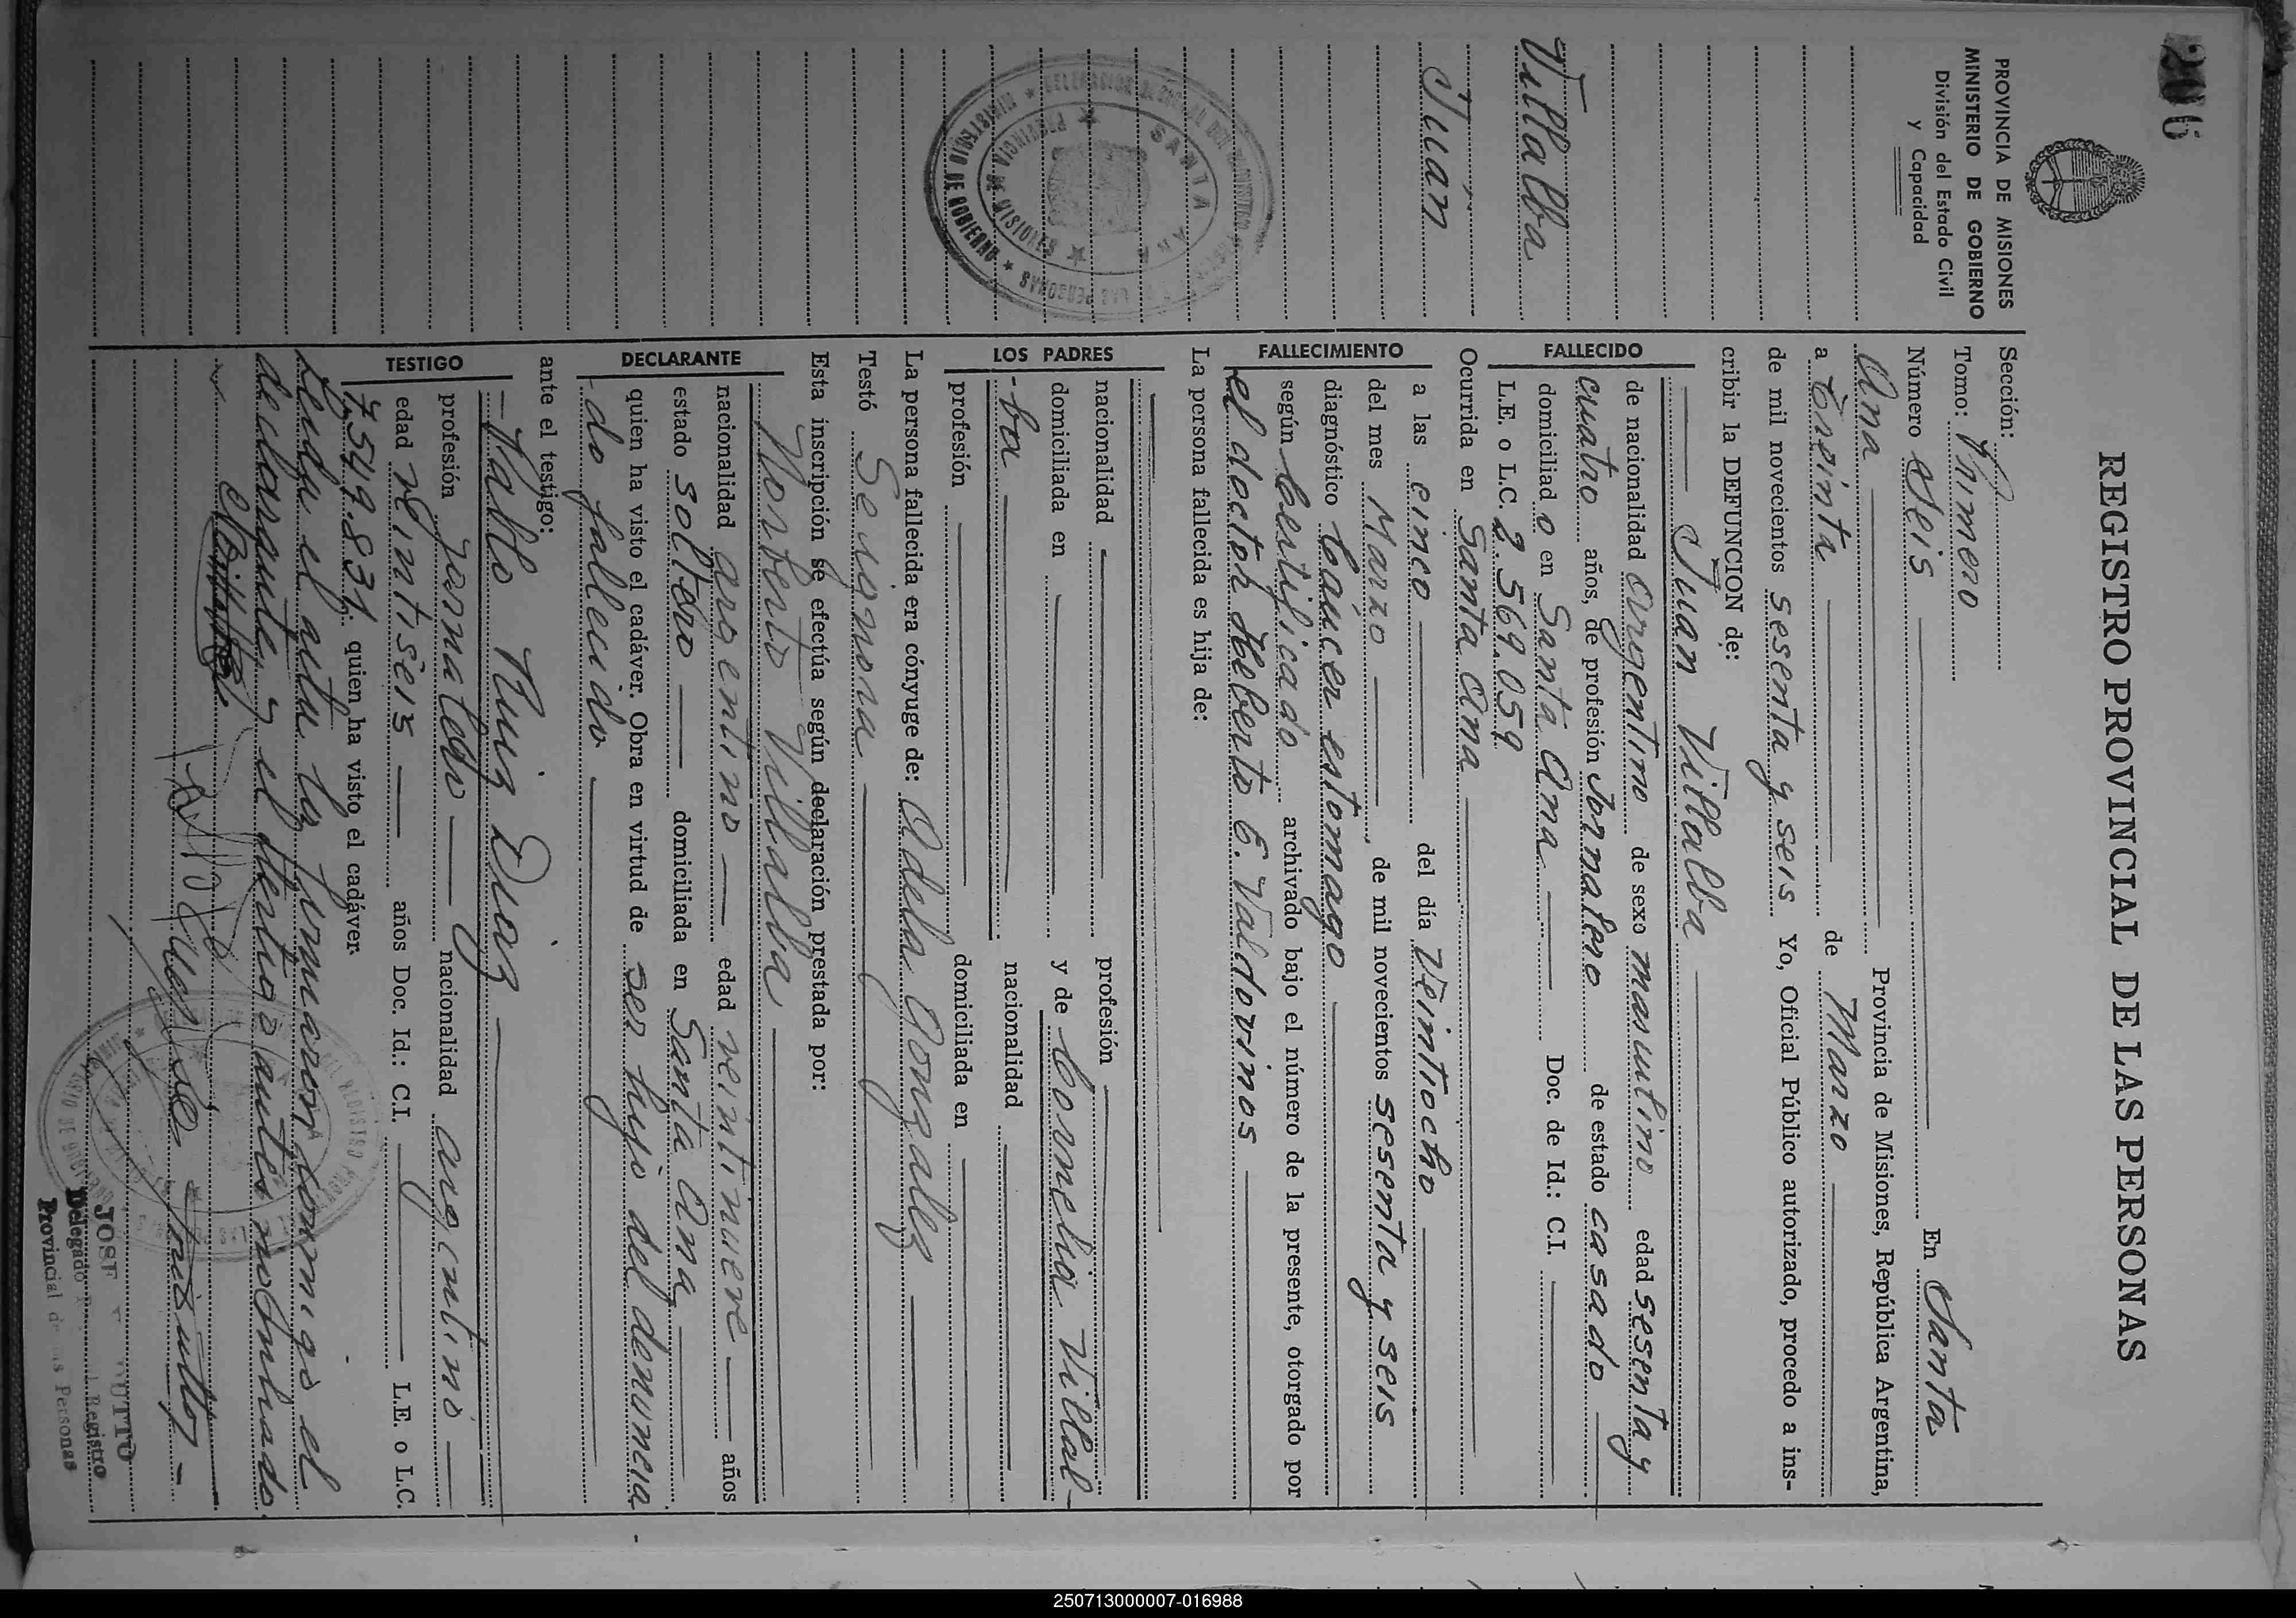 206
PROVINCIA DE MISIONES
MINISTERIO DE GOBIERNO
División del Estado Civil
y Capacidad
Villalba
Juan
SANTA ANA
PROVINCIA DE MISIONES
MINISTERIO DE GOBIERNO
REGISTRO PROVINCIAL DE LAS PERSONAS
Sección:
Tomo: Primero
Número Seis En Santa
Ana Provincia de Misiones, República Argentina,
a treinta de Marzo
de mil novecientos sesenta y seis Yo, Oficial Público autorizado, procedo a ins-
cribir la DEFUNCION de:
FALLECIDO
Juan Villalba
de nacionalidad argentino de sexo masculino edad sesenta y
cuatro años, de profesión Jornalero de estado casado
domiciliado en Santa Ana Doc. de Id.: C.I.
L.E. o L.C. 2.569.059
FALLECIMIENTO
Ocurrida en Santa Ana
a las cinco del día veintiocho
del mes Marzo, de mil novecientos sesenta y seis
diagnóstico Cáncer estomago
según certificado archivado bajo el número de la presente, otorgado por
el doctor Heberto E. Valdovinos
La persona fallecida es hija de:
LOS PADRES
nacionalidad profesión
domiciliada en y de Cornelia Villal-
-ba nacionalidad
profesión domiciliada en
La persona fallecida era cónyuge de: Adela Gonzalez
Testó Se ignora
Esta inscripción se efectúa según declaración prestada por:
DECLARANTE
Norberto Villalba
nacionalidad argentino edad veintinueve años
estado soltero domiciliada en Santa Ana
quien ha visto el cadáver. Obra en virtud de ser hijo del denuncia
-do fallecido
ante el testigo:
TESTIGO
Pablo Ruiz Diaz
profesión jornalero nacionalidad argentino
edad veintiseis años Doc. Id.: C.I. L.E. o L.C.
7.549.831. quien ha visto el cadáver.
Leída el acta la firmaron conmigo el
declarante y el testigo antes nombrado.
JOSE
Delegado Registro
Provincial de las Personas
250713000007-016988